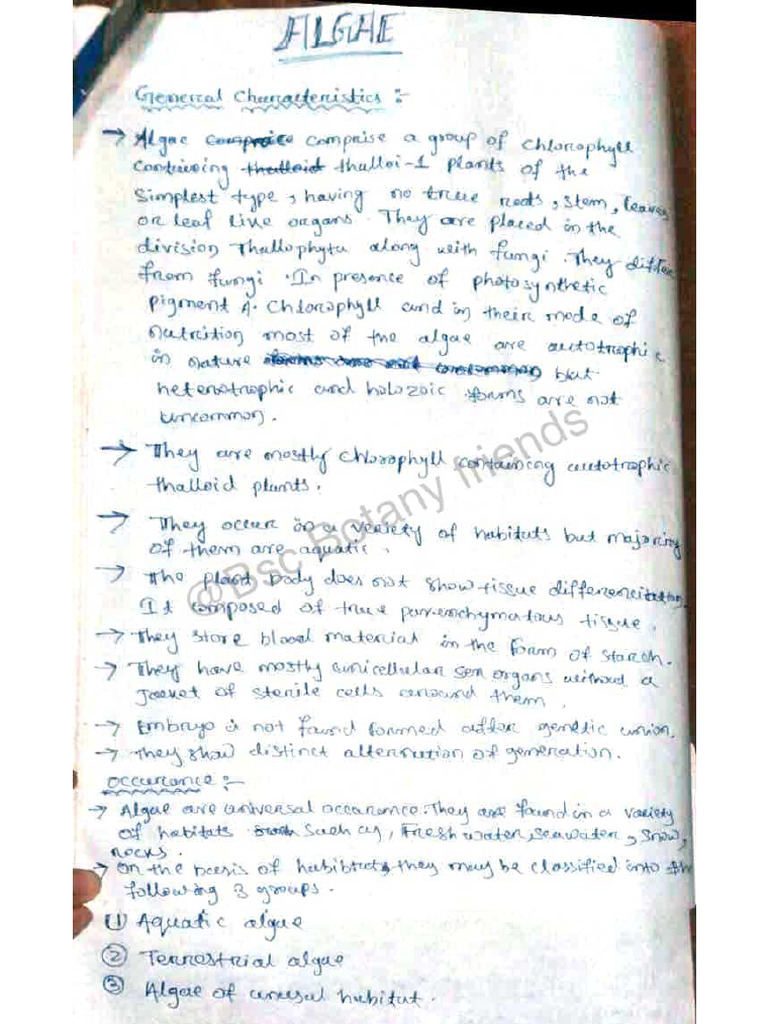 ALGAE
General Characteristics :-
→ Algae comprise a group of chlorophyll
containing thalloid thalloi-1 plants of the
simplest type, having no true roots, stem, leaves
or leaf line organs. They are placed in the
division Thallophyta along with fungi. They differ
from fungi. In presence of photosynthetic
pigment A. Chlorophyll and in their mode of
nutrition most of the algae are autotrophic
in nature but
heterotrophic and holozoic forms are not
uncommon.
→ They are mostly chlorophyll containing autotrophic
thalloid plants.
→ They occur in a variety of habitats but majority
of them are aquatic.
→ The plant body does not show tissue differencitation.
It composed of true parenchymatous tissue.
→ They store blood material in the form of starch.
→ They have mostly unicellular sex organs without a
Jacket of sterile cells around them.
→ Embryo is not found formed after genetic union.
→ They show distinct alternation of generation.
Occurance :-
→ Algae are universal occarance. They are found in a variety
of habitats such as, Fresh water, seawater, snow,
rocks.
→ On the basis of habibtats they may be classified into the
following 3 groups.
(1) Aquatic algae
(2) Terrestrial algae
(3) Algae of unusal habitat.
@Bsc Botany friends